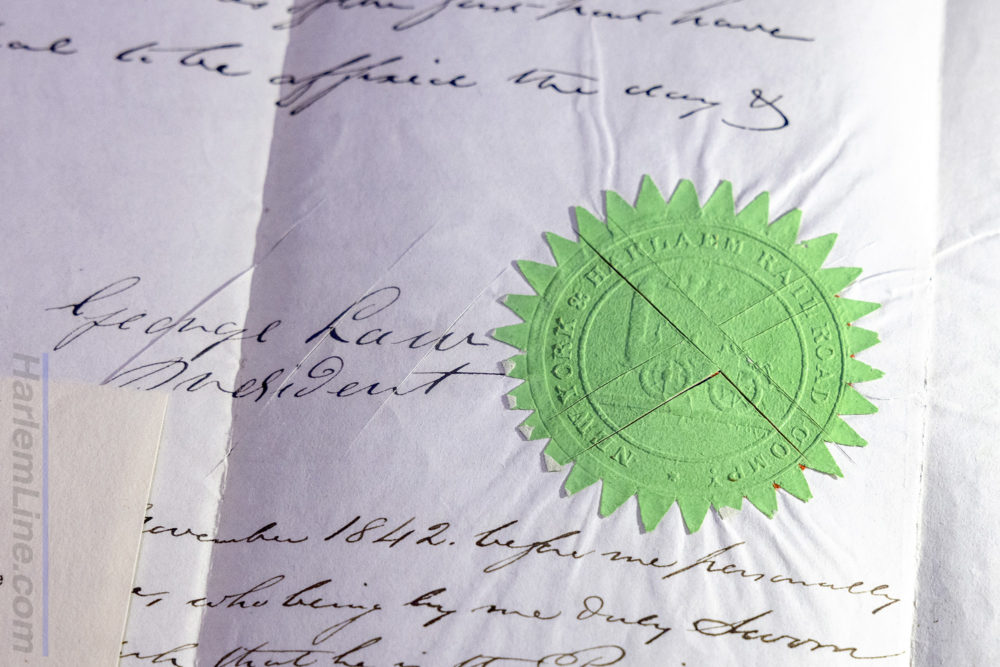 of the first part have
to be affixed the day &
George Law
President
NEW YORK & HARLAEM RAIL ROAD COMPY
November 1842. before me personally
who being by me duly Sworn
that he is the
HarlemLine.com